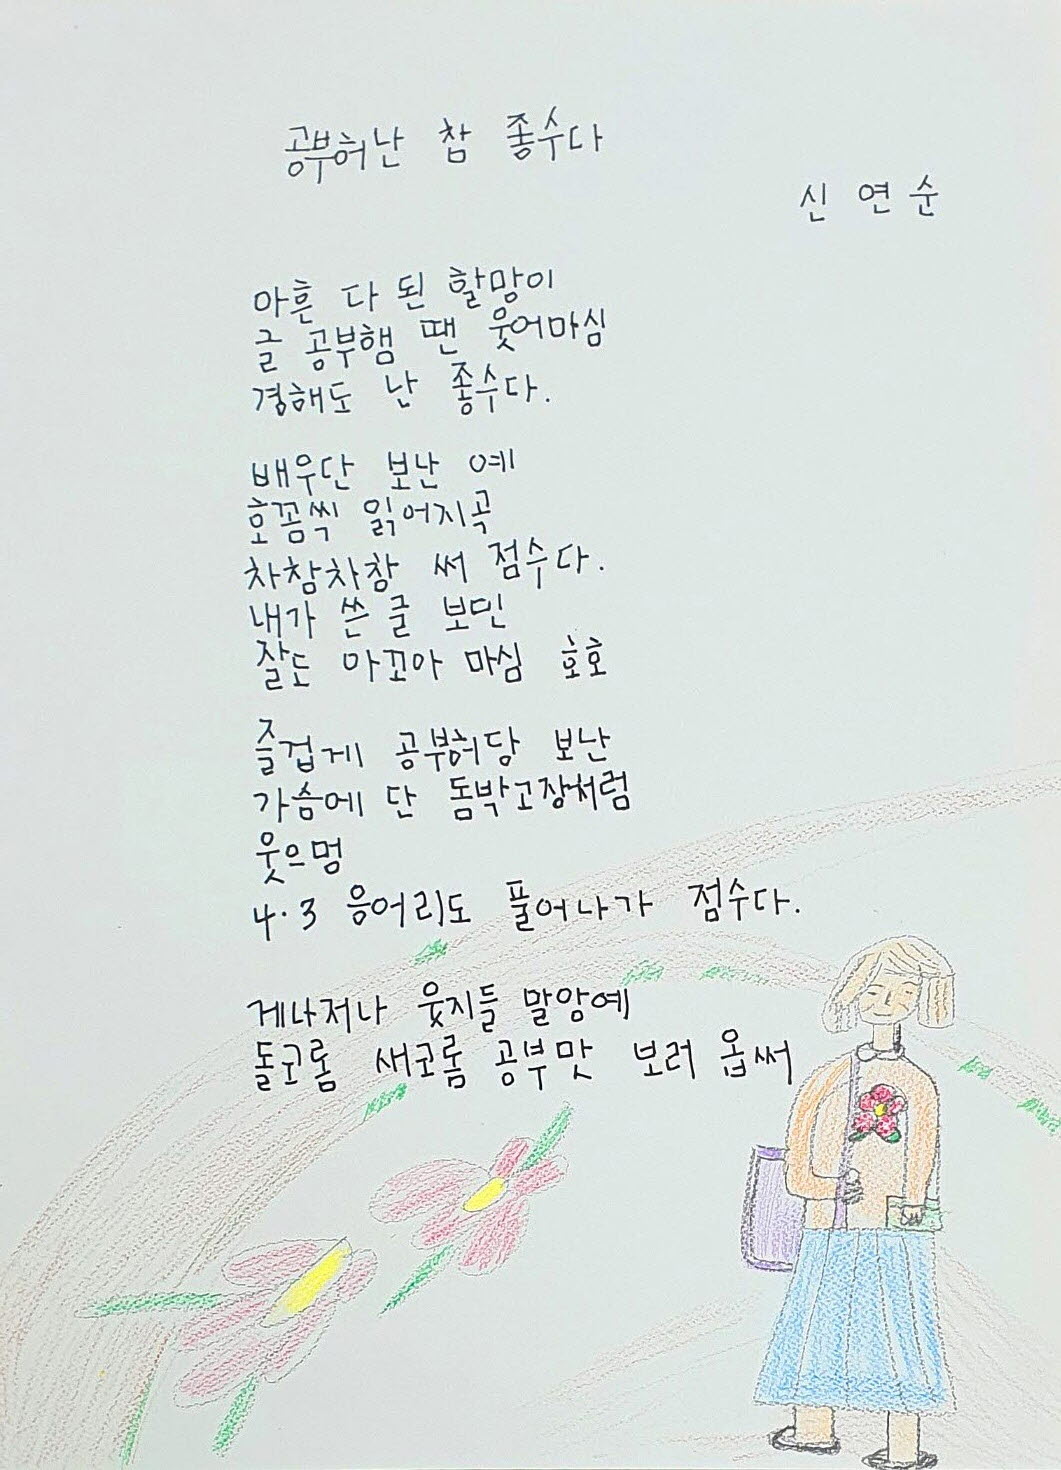 공부허난 참 좋수다
신연순
아흔 다 된 할망이
글 공부햄 땐 웃어마심
경해도 난 좋수다.
배우단 보난 예
호꼼씩 읽어지곡
차참차창 써 점수다.
내가 쓴 글 보민
잘도 아꼬아 마심 호호
즐겁게 공부허당 보난
가슴에 단 돔박고장처럼
웃으멍
4.3 응어리도 풀어나가 점수다.
게나저나 웂지들 말앙예
돌코롬 새코롬 공부맛 보러 옵써